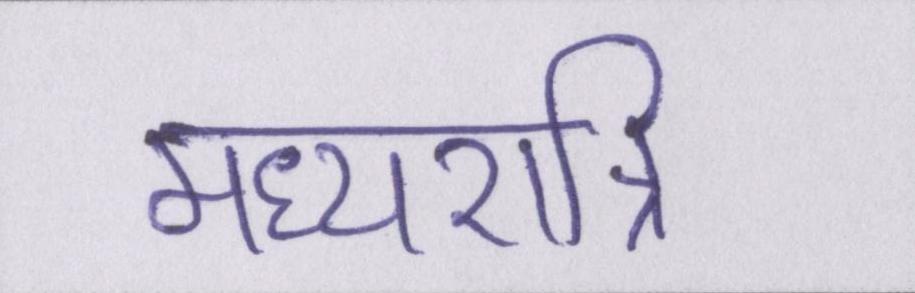 मध्यरात्रि